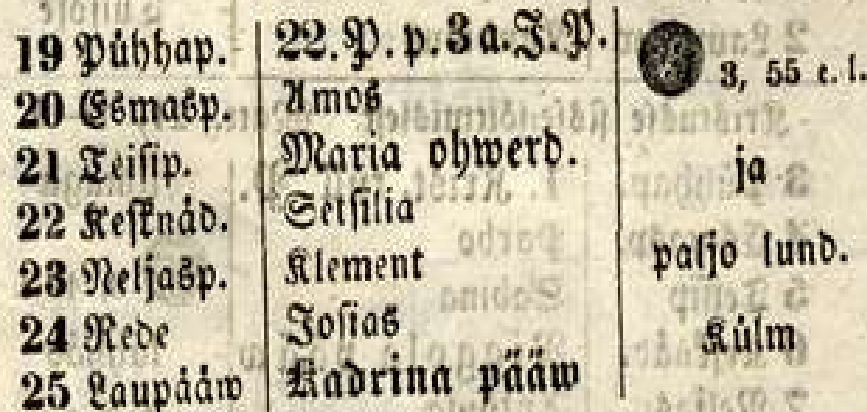 19 Pühhap. 22. P. p. 3 a. J. P. 3, 55 e. l.
20 Esmasp. Amos
21 Teisip. Maria ohwerd. ja
22 Kesknäd. Setsilia
23 Neljasp. Klement paljo lund.
24 Rede Josias Külm
25 Laupääw Kadrina pääw